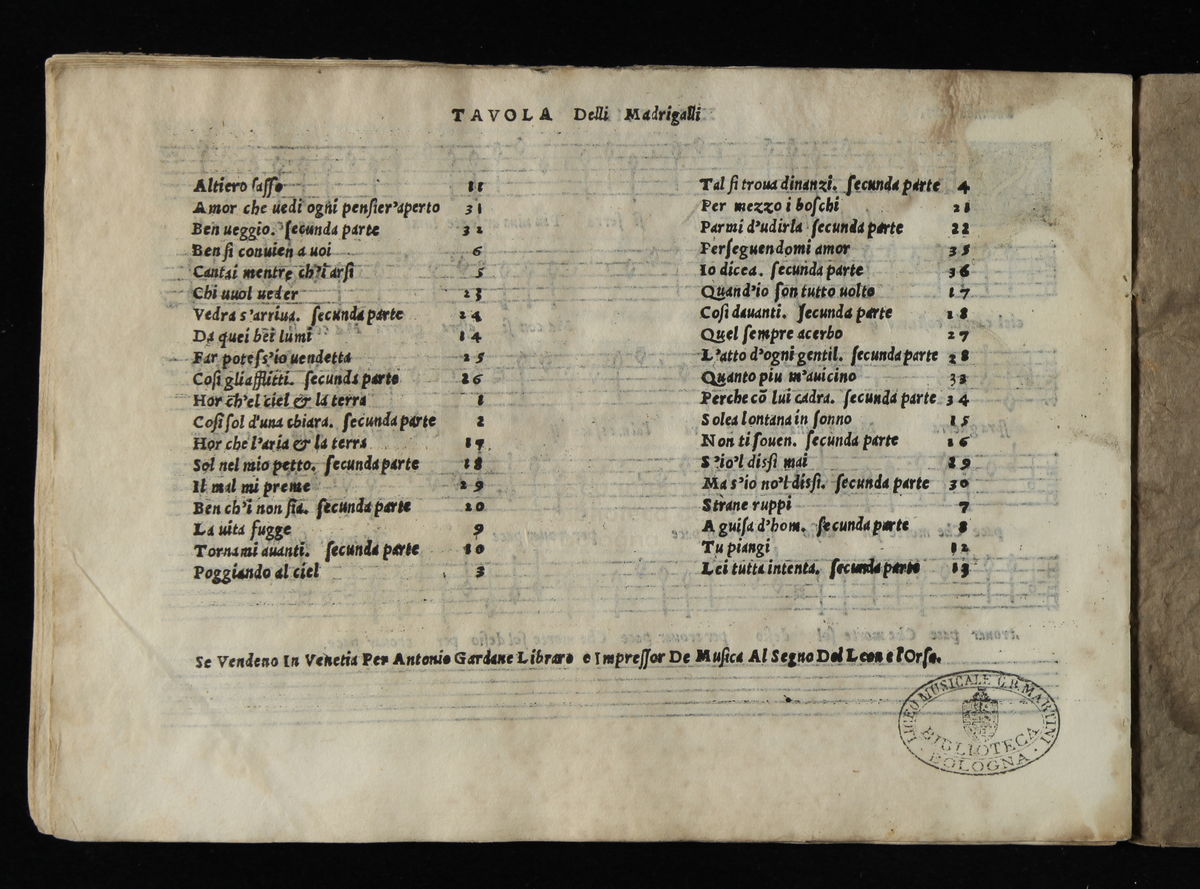 TAVOLA Delli Madrigalli
Altiero sasso 11
Amor che uedi ogni pensier'aperto 31
Ben ueggio. secunda parte 32
Ben si conuien a uoi 6
Cantai mentre ch'i arsi 5
Chi uuol ueder 23
Vedra s'arriua. secunda parte 24
Da quei bei lumi 14
Far potess'io uendetta 25
Cosi gli afflitti. secunda parte 26
Hor ch'el ciel & la terra 1
Cosi sol d'una chiara. secunda parte 2
Hor che l'aria & la terra 17
Sol nel mio petto. secunda parte 18
Il mal mi preme 29
Ben ch'i non sia. secunda parte 20
La uita fugge 9
Tornami auanti. secunda parte 10
Poggiando al ciel 3
Tal si troua dinanzi. secunda parte 4
Per mezzo i boschi 21
Parmi d'udirla secunda parte 22
Perseguendomi amor 35
Io dicea. secunda parte 36
Quand'io son tutto uolto 17
Cosi dauanti. secunda parte 18
Quel sempre acerbo 27
L'atto d'ogni gentil. secunda parte 28
Quanto piu m'auicino 33
Perche cō lui cadra. secunda parte 34
Solea lontana in sonno 15
Non ti souen. secunda parte 16
S'io'l dissi mai 29
Ma s'io no'l dissi. secunda parte 30
Strane ruppi 7
A guisa d'hom. secunda parte 8
Tu piangi 12
Lei tutta intenta. secunda parte 13
Se Vendeno In Venetia Per Antonio Gardane Libraro e Impressor De Musica Al Segno Del Leon e l'Orso.
LICEO MUSICALE G.B. MARTINI
BIBLIOTECA
BOLOGNA